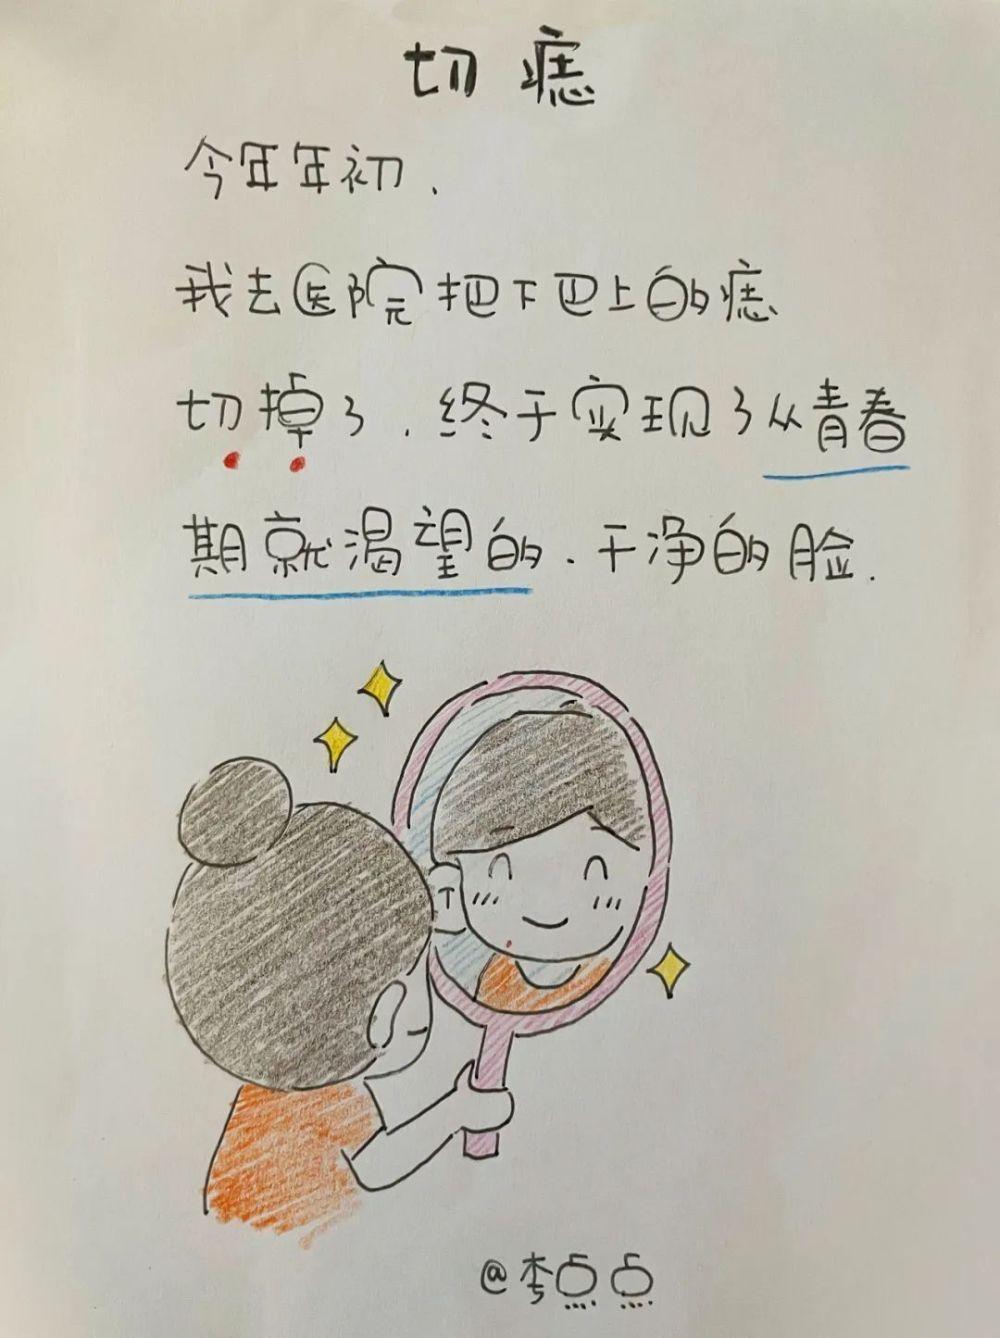 切痣
今年年初，
我去医院把下巴上的痣
切掉了，终于实现了从青春
期就渴望的、干净的脸.
@李点点